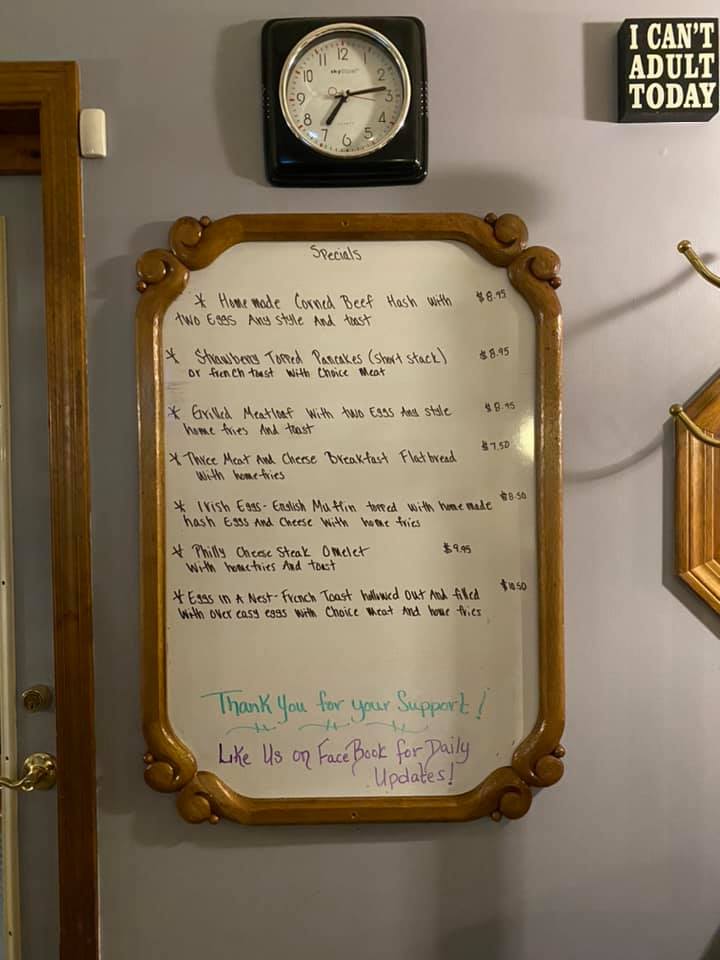 12
11
10
9
8
7
6
5
3
2
I CAN'T
ADULT
TODAY
Specials
* Home made Corned Beef Hash with $8.95
two Eggs Any style And toast
* Strawberry Topped Pancakes (short stack) $8.95
or french toast with Choice Meat
* Grilled Meatloaf with two Eggs Any style $8.95
home fries And toast
* Three Meat And Cheese Breakfast Flatbread $7.50
with home fries
* Irish Eggs - English Muffin topped with home made $8.50
hash Eggs And Cheese with home fries
* Philly Cheese Steak Omelet $9.95
with home fries And toast
* Eggs in A Nest - French Toast hollowed out And filled $10.50
with over easy eggs with Choice meat And home fries
Thank You for your Support!
Like Us on FaceBook for Daily
Updates!